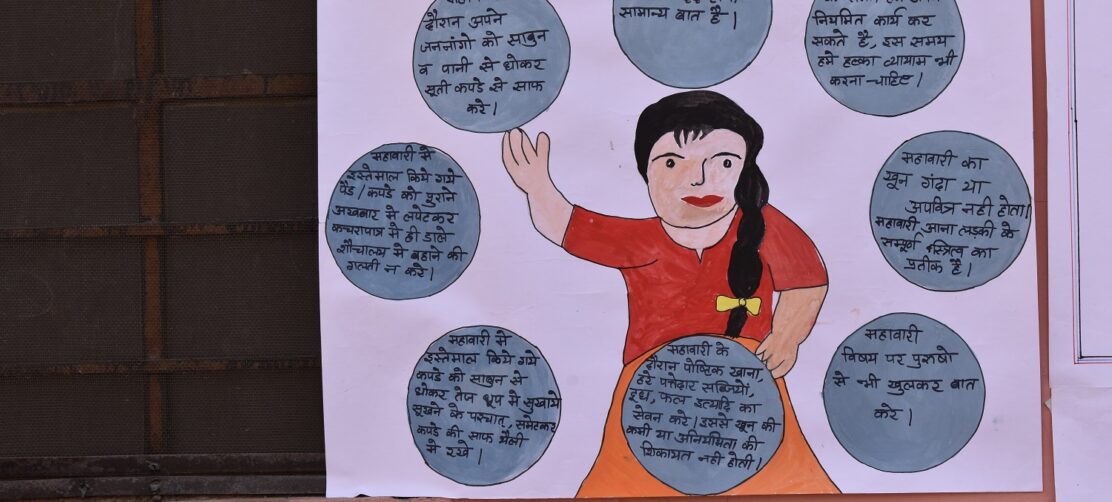 दौरान अपने
जननांगो को साबुन
व पानी से धोकर
सूती कपडे से साफ
करे।
सामान्य बात है।
नियमित कार्य कर
सकते है, इस समय
हमे हल्का व्यायाम भी
करना चाहिए।
सहावारी से
इस्तेमाल किये गये
पैड / कपडे को पुराने
अखबार से लपेटकर
कचरापात्र से ही डाले
शौचालय से बहाने की
गल्ती न करे।
सहावारी का
खून गंदा या
अपवित्र नही होता।
सहावारी आना लड़की के
सम्पूर्ण स्त्रित्व का
प्रतीक है।
सहावारी से
इस्तेमाल किये गये
कपडे को साबुन से
धोकर तेज धूप से सुखाये
सूखने के पश्चात, समेटकर
कपडे की साफ थैली
से रखे।
सहावारी के
दौरान पोष्टिक खाना,
हरे पत्तेदार सब्जियों,
दूध, फल इत्यादि का
सेवन करे। इससे खून की
कमी या अनियमिता की
शिकायत नही होती।
सहावारी
विषय पर पुरुषो
से भी खुलकर बात
करे।